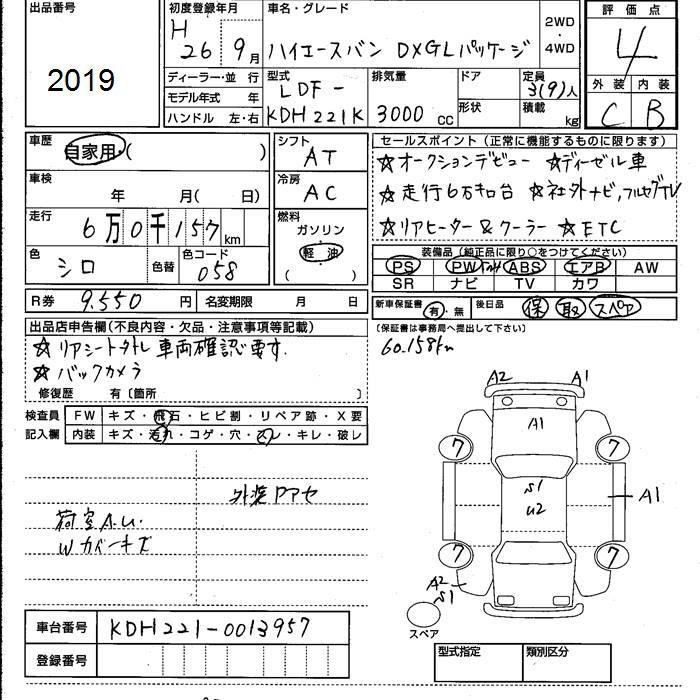 出品番号
2019
初度登録年月
H
26 9月
車名・グレード
ハイエースバン DXGLパッケージ
2WD
・
4WD
評価点
4
外装 内装
C B
ディーラー・並 行
モデル年式 年
ハンドル 左・右
型式
LDF-
KDH221K
排気量
3000 cc
ドア
形状
定員
3(9)人
積載
kg
車歴
自家用・( )
車検
年 月( 日)
走行
6万0千157km
色
シロ
色替
色コード
058
シフト
AT
冷房
AC
燃料
ガソリン
軽油
( )
セールスポイント(正常に機能するものに限ります)
☆オークションデビュー ☆ディーゼル車
☆走行6万キロ台 ☆社外ナビ,フルセグTV
☆リアヒーター&クーラー ☆ETC
装備品(純正品に限り○をつけてください)
PS PW ABS エアB AW
SR ナビ TV カワ
R券 9.550 円 名変期限 月 日
新車保証書 有・無 後日品 保 取 スペア
(保証書は事務局へ提出して下さい)
60.158km
出品店申告欄(不良内容・欠品・注意事項等記載)
☆リアシート外し 車両確認要す.
☆バックカメラ
修復歴 有〔箇所 〕
検査員 FW キズ・飛石・ヒビ割・リペア跡・X要
記入欄 内装 キズ・汚れ・コゲ・穴・スレ・キレ・破レ
外装Pアセ
荷室A.U.
Wカバーキズ
A2 A1
A1
7 7
S1
U2
A1
7 7
A2
S1
スペア
車台番号 KDH221-0013957
登録番号
型式指定 類別区分